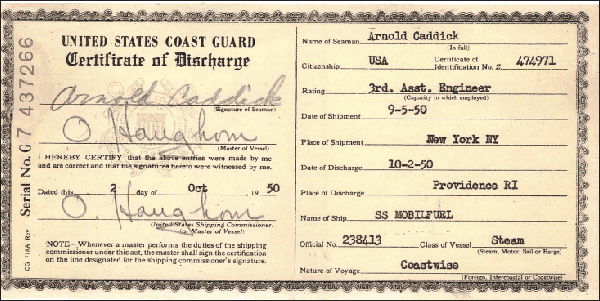 UNITED STATES COAST GUARD
Certificate of Discharge
Arnold Caddick
(Signature of Seaman)
O. Haughom
(Master of Vessel)
I HEREBY CERTIFY that the above entries were made by me
and are correct and that the signatures hereto were witnessed by me.
Dated this 2 day of Oct 19 50
O. Haughom
(United States Shipping Commissioner,
or Master of Vessel)
NOTE—Whenever a master performs the duties of the shipping
commissioner under this act, the master shall sign the certification
on the line designated for the shipping commissioner's signature.
Serial No. G 7 437266
Name of Seaman, Arnold Caddick
(In full)
Citizenship USA Certificate of Identification No. Z 474971
Rating 3rd. Asst. Engineer
(Capacity in which employed)
Date of Shipment 9-5-50
Place of Shipment New York NY
Date of Discharge 10-2-50
Place of Discharge Providence RI
Name of Ship SS MOBILFUEL
Official No. 238413 Class of Vessel Steam
(Steam, Motor, Sail or Barge)
Nature of Voyage Coastwise
(Foreign, Intercoastal or Coastwise)